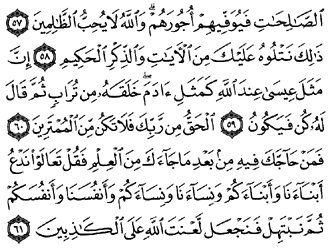 الصَّالِحَاتِ فَيُوَفِّيهِمْ أُجُورَهُمْ ۗ وَاللَّهُ لَا يُحِبُّ الظَّالِمِينَ ۝٥٧
ذَٰلِكَ نَتْلُوهُ عَلَيْكَ مِنَ الْآيَاتِ وَالذِّكْرِ الْحَكِيمِ ۝٥٨ إِنَّ
مَثَلَ عِيسَىٰ عِندَ اللَّهِ كَمَثَلِ ءَادَمَ ۖ خَلَقَهُ مِن تُرَابٍ ثُمَّ قَالَ
لَهُ كُن فَيَكُونُ ۝٥٩ الْحَقُّ مِن رَّبِّكَ فَلَا تَكُن مِّنَ الْمُمْتَرِينَ ۝٦٠
فَمَنْ حَاجَّكَ فِيهِ مِن بَعْدِ مَا جَاءَكَ مِنَ الْعِلْمِ فَقُلْ تَعَالَوْا نَدْعُ
أَبْنَاءَنَا وَأَبْنَاءَكُمْ وَنِسَاءَنَا وَنِسَاءَكُمْ وَأَنفُسَنَا وَأَنفُسَكُمْ
ثُمَّ نَبْتَهِلْ فَنَجْعَل لَّعْنَتَ اللَّهِ عَلَى الْكَاذِبِينَ ۝٦١